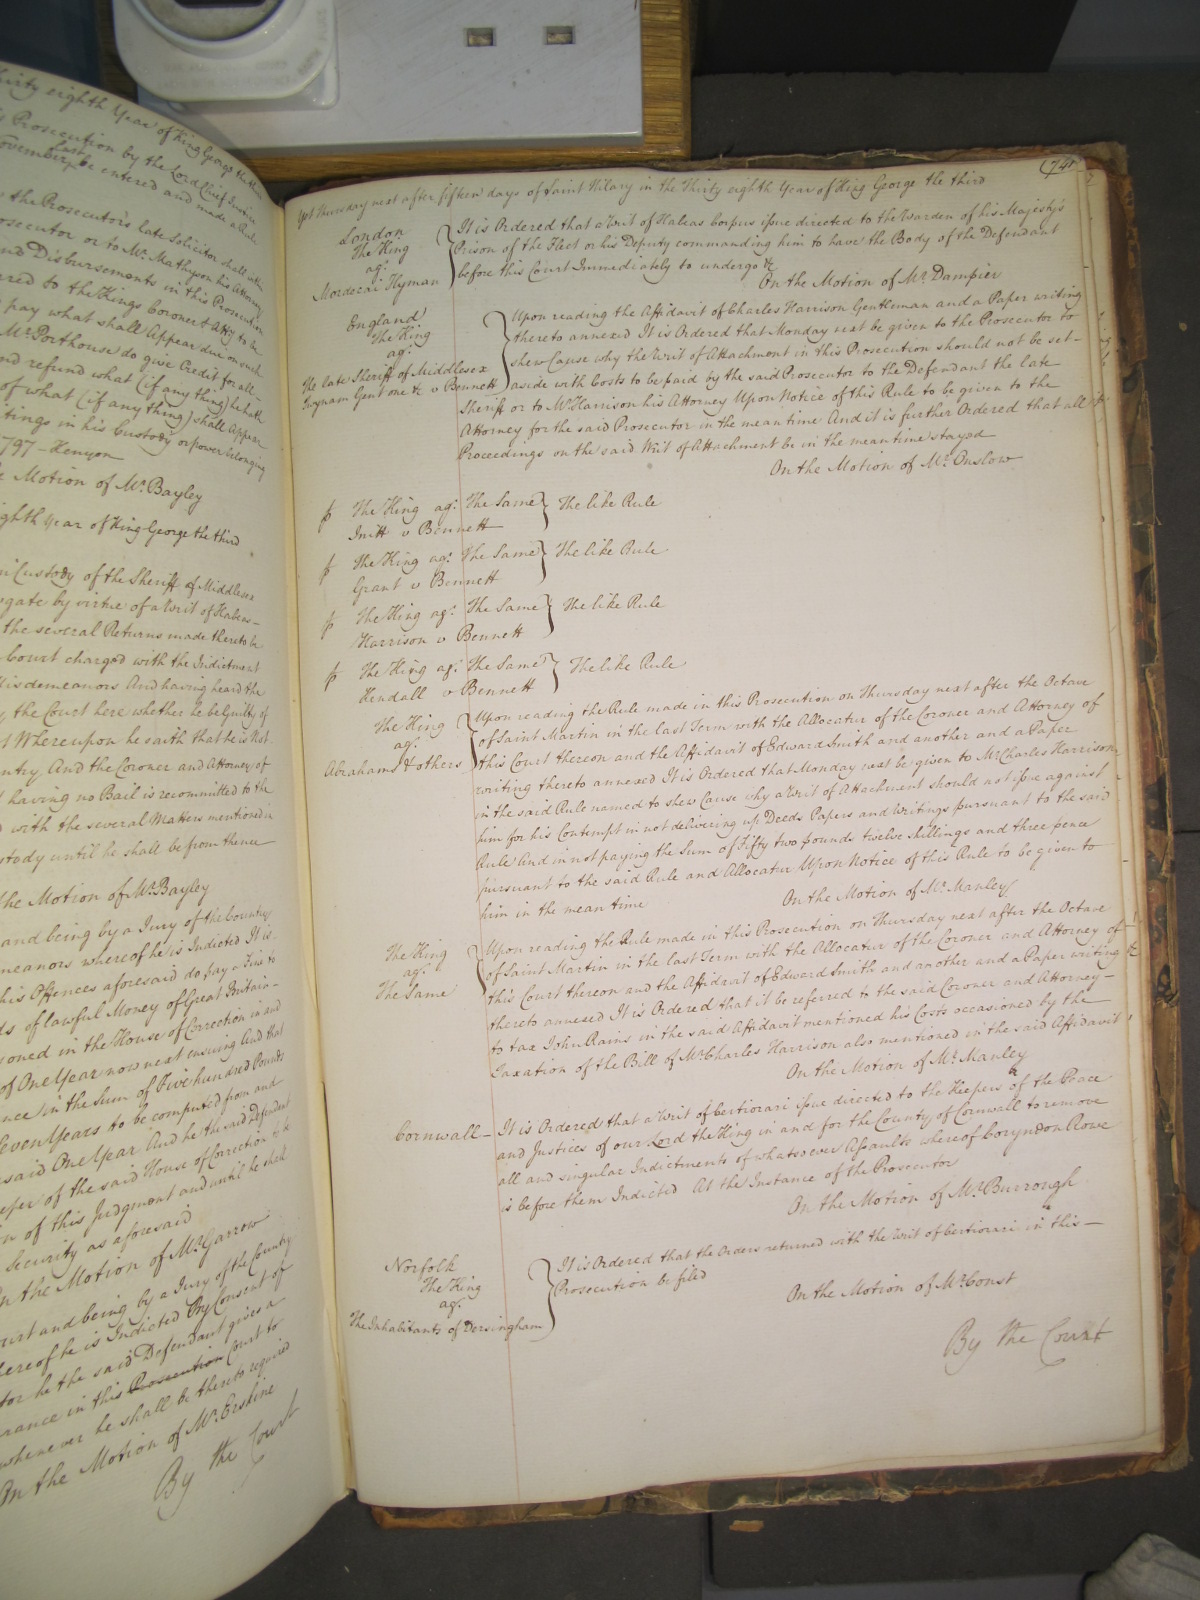 thirty eighth Year of King George the third
Prosecution by the Lord Chief Justice
last
November be entered and made a Rule
the Prosecutor's late Solicitor shall
Prosecutor or to Mr. Mathyson his Attorney
and Disbursements in this Prosecution
referred to the Kings Coroner & Atty to
pay what shall Appear due on such
Mr Porthouse do give Credit for all
and refund what (if any thing) he hath
of what (if any thing) shall Appear
Writings in his Custody or power belonging
1797 - Kenyon
Motion of Mr. Bayley
eighth Year of King George the third
in Custody of the Sheriff of Middlesex
Newgate by virtue of a Writ of Habeas
the several Returns made thereto be
Court charged with the Indictment
Misdemeanors And having heard the
the Court here whether he be Guilty of
Whereupon he saith that he is Not
Country. And the Coroner and Attorney of
having no Bail is recommitted to the
with the several Matters mentioned in
Custody until he shall be from thence
the Motion of Mr. Bayley
and being by a Jury of the Country
whereof he is Indicted It is
his Offences aforesaid do pay a Fine to
of lawful Money of Great Britain
in the House of Correction in and
of One Year now next ensuing And that
in the Sum of Five hundred Pounds
Seven Years to be computed from and
said One Year And he the said Defendant
Keeper of the said House of Correction
of this Judgment and until he shall
security as aforesaid
On the Motion of Mr. Garrow
Court and being by a Jury of the Country
whereof he is Indicted By Consent of
he the said Defendant gives a
in this Prosecution Court to
whenever he shall be thereto required
On the Motion of Mr. Erskine
By the Court
(74)
Yet Monday next after fifteen days of Saint Hilary in the Thirty eighth Year of King George the third
London
The King
agt.
Mordecai Hyman
It is Ordered that a Writ of Habeas Corpus issue directed to the Warden of his Majesty's
Prison of the Fleet or his Deputy commanding him to have the Body of the Defendant
before this Court Immediately to undergo &c
On the Motion of Mr. Dampier
England
The King
agt.
The late Sheriff of Middlesex
Gent one &c v Bennett
Upon reading the Affidavit of Charles Harrison Gentleman and a Paper writing
thereto annexed It is Ordered that Monday next be given to the Prosecutor to
shew Cause why the Writ of Attachment in this Prosecution should not be set-
aside with Costs to be paid by the said Prosecutor to the Defendant the late
Sheriff or to Mr. Harrison his Attorney Upon Notice of this Rule to be given to the
Attorney for the said Prosecutor in the mean time And it is further Ordered that all
Proceedings on the said Writ of Attachment be in the mean time stayed
On the Motion of Mr. Onslow
The King agt. The Same } The like Rule
v Bennett
The King agt. The Same } The like Rule
Grant v Bennett
The King agt. The Same } The like Rule
Harrison v Bennett
The King agt. The Same } The like Rule
Kendall v Bennett
The King
agt.
Abrahams & others
Upon reading the Rule made in this Prosecution on Thursday next after the Octave
of Saint Martin in the last Term with the Allocatur of the Coroner and Attorney of
this Court thereon and the Affidavit of Edward Smith and another and a Paper
writing thereto annexed It is Ordered that Monday next be given to Mr. Charles Harrison
in the said Rule named to shew Cause why a Writ of Attachment should not issue against
him for his Contempt in not delivering up Deeds Papers and Writings pursuant to the said
Rule And in not paying the Sum of Fifty two pounds twelve shillings and three pence
pursuant to the said Rule and Allocatur Upon Notice of this Rule to be given to
him in the mean time
On the Motion of Mr. Manley
The King
agt.
The Same
Upon reading the Rule made in this Prosecution on Thursday next after the Octave
of Saint Martin in the last Term with the Allocatur of the Coroner and Attorney of
this Court thereon and the Affidavit of Edward Smith and another and a Paper writing
thereto annexed It is Ordered that it be referred to the said Coroner and Attorney-
to tax John Rains in the said Affidavit mentioned his Costs occasioned by the
Taxation of the Bill of Mr. Charles Harrison also mentioned in the said Affidavit
On the Motion of Mr. Manley
Cornwall - It is Ordered that a Writ of Certiorari issue directed to the Keepers of the Peace
and Justices of our Lord the King in and for the County of Cornwall to remove
all and singular Indictments of whatsoever Assaults whereof Coryndon Rowe
is before them Indicted At the Instance of the Prosecutor
On the Motion of Mr. Burrough
Norfolk
The King
agt.
The Inhabitants of Dersingham
It is Ordered that the Orders returned with the Writ of Certiorari in this-
Prosecution be filed
On the Motion of Mr. Const
By the Court